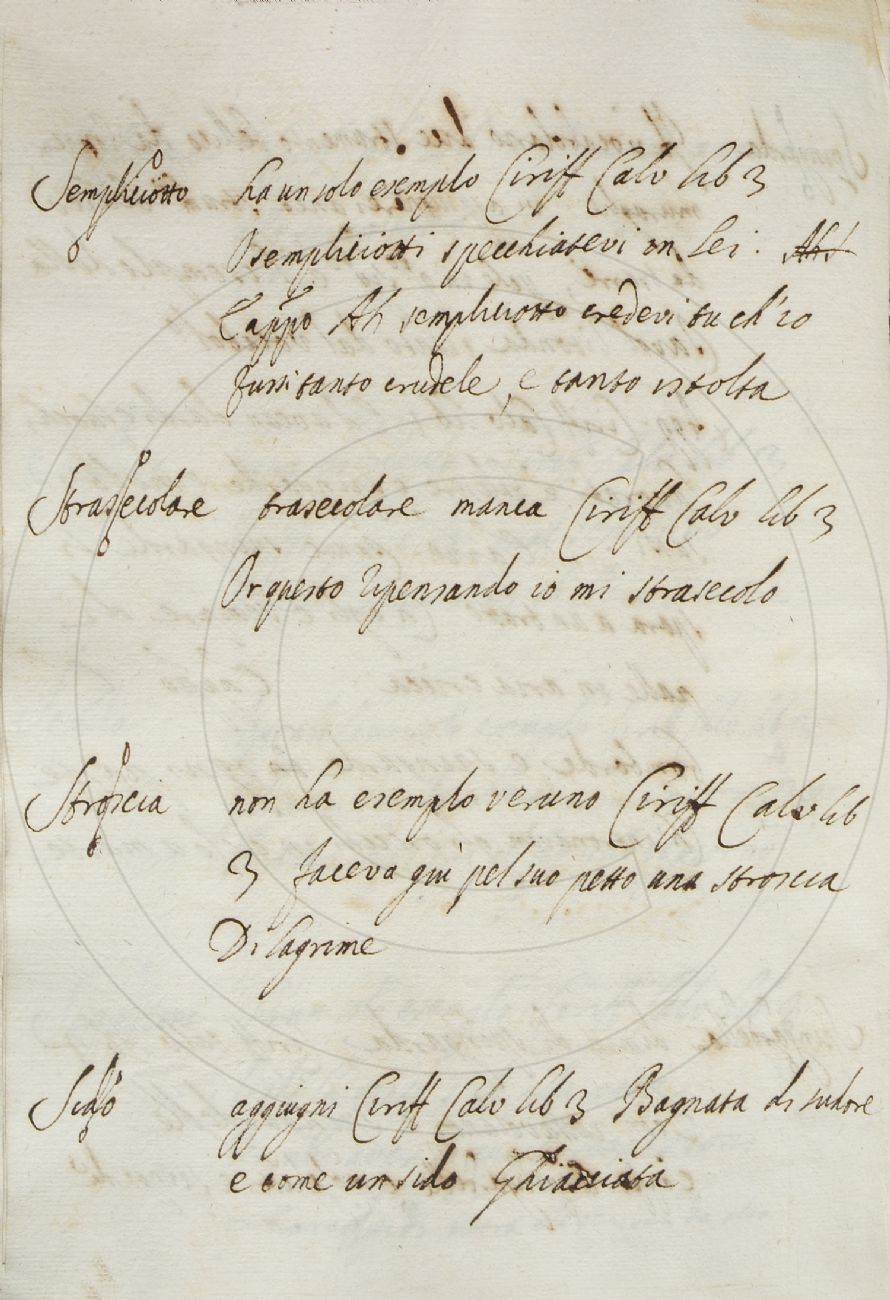 Sempliciotto ha un solo esemplo Ciriff Calv lib 3
O sempliciotti specchiatevi in lei.
Cappo Ah sempliciotto credevi tu ch'io
fussi tanto crudele, e tanto istolta
Strassecolare trasecolare manca Ciriff Calv lib 3
Or questo ripensando io mi strasecolo
Stroscia non ha esemplo veruno Ciriff Calv lib
3 faceva giù pel suo petto una stroscia
Di lagrime
Sido aggiugni Ciriff Calv lib 3 Bagnata di sudore
e come un sido Ghiacciata